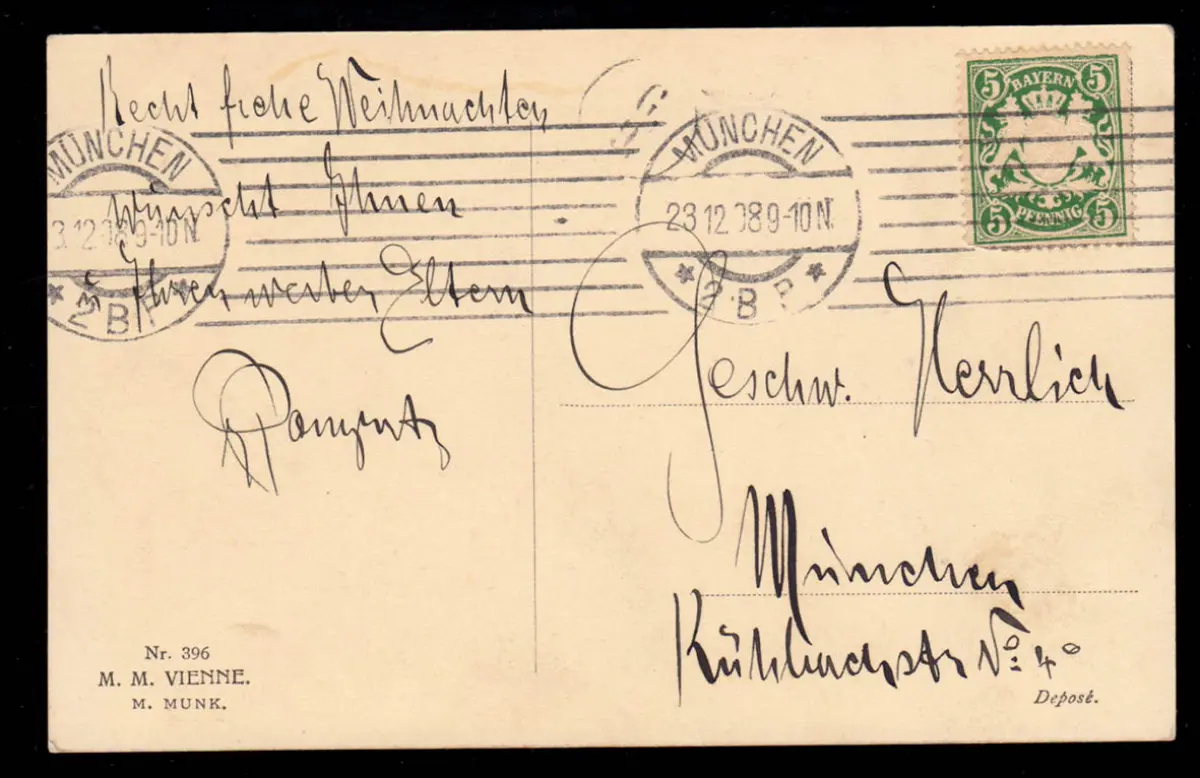 Recht frohe Weihnachten
wünscht Ihnen
u. Ihren werten Eltern
Geschw. Herrlich
München
Kühbachstr No 4⁰
MÜNCHEN
23.12.08 9-10 N.
* 2. B. P. *
MÜNCHEN
23.12.08 9-10 N.
* 2. B. P. *
5 BAYERN 5
5 PFENNIG 5
Nr. 396
M. M. VIENNE.
M. MUNK.
Depost.